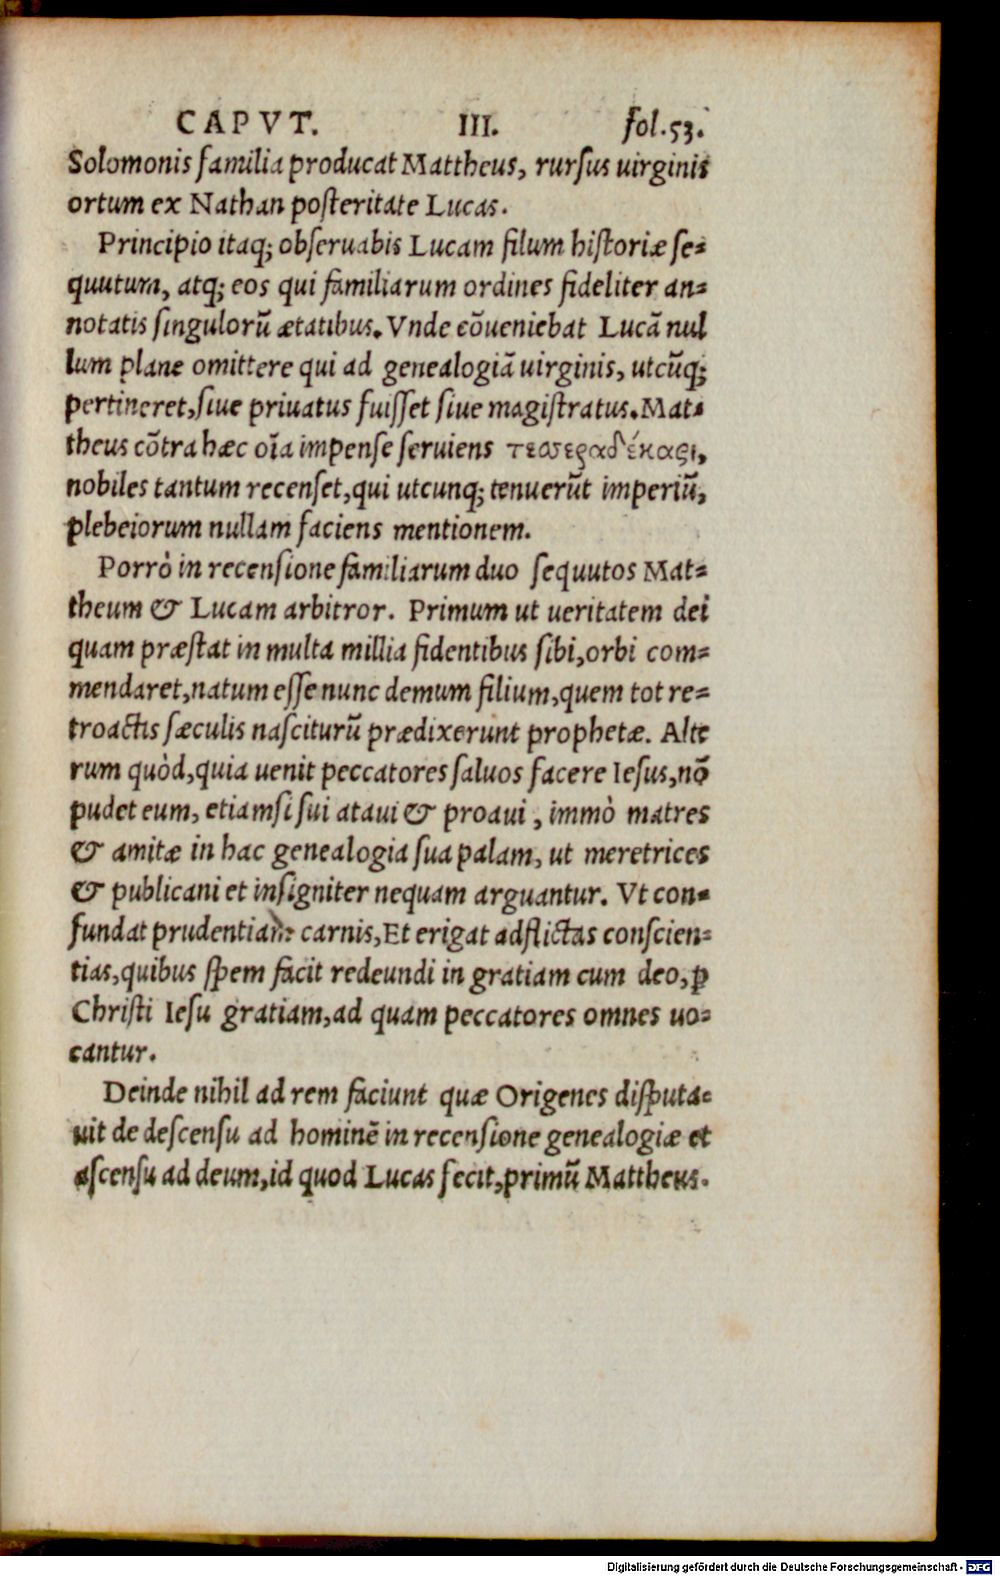 CAPVT. III. fol.53.
Solomonis familia producat Mattheus, rursus uirginis
ortum ex Nathan posteritate Lucas.
Principio itaq; obseruabis Lucam filum historiæ se-
quutum, atq; eos qui familiarum ordines fideliter an-
notatis singulorũ ætatibus. Vnde cõueniebat Lucã nul
lum plane omittere qui ad genealogiã uirginis, utcũq;
pertineret, siue priuatus fuisset siue magistratus. Mat-
theus cõtra hæc oĩa impense seruiens τεσσεραδέκασι,
nobiles tantum recenset, qui utcunq; tenuerũt imperiũ,
plebeiorum nullam faciens mentionem.
Porrò in recensione familiarum duo sequutos Mat-
theum & Lucam arbitror. Primum ut ueritatem dei
quam præstat in multa millia fidentibus sibi, orbi com-
mendaret, natum esse nunc demum filium, quem tot re-
troactis sæculis nasciturũ prædixerunt prophetæ. Alte
rum quòd, quia uenit peccatores saluos facere Iesus, nõ
pudet eum, etiamsi sui ataui & proaui, immò matres
& amitæ in hac genealogia sua palam, ut meretrices
& publicani et insigniter nequam arguantur. Vt con-
fundat prudentiam carnis, Et erigat adflictas conscien-
tias, quibus spem facit redeundi in gratiam cum deo, ꝑ
Christi Iesu gratiam, ad quam peccatores omnes uo-
cantur.
Deinde nihil ad rem faciunt quæ Origenes disputa-
uit de descensu ad hominẽ in recensione genealogiæ et
ascensu ad deum, id quod Lucas fecit, primũ Mattheus.
Digitalisierung gefördert durch die Deutsche Forschungsgemeinschaft - DFG